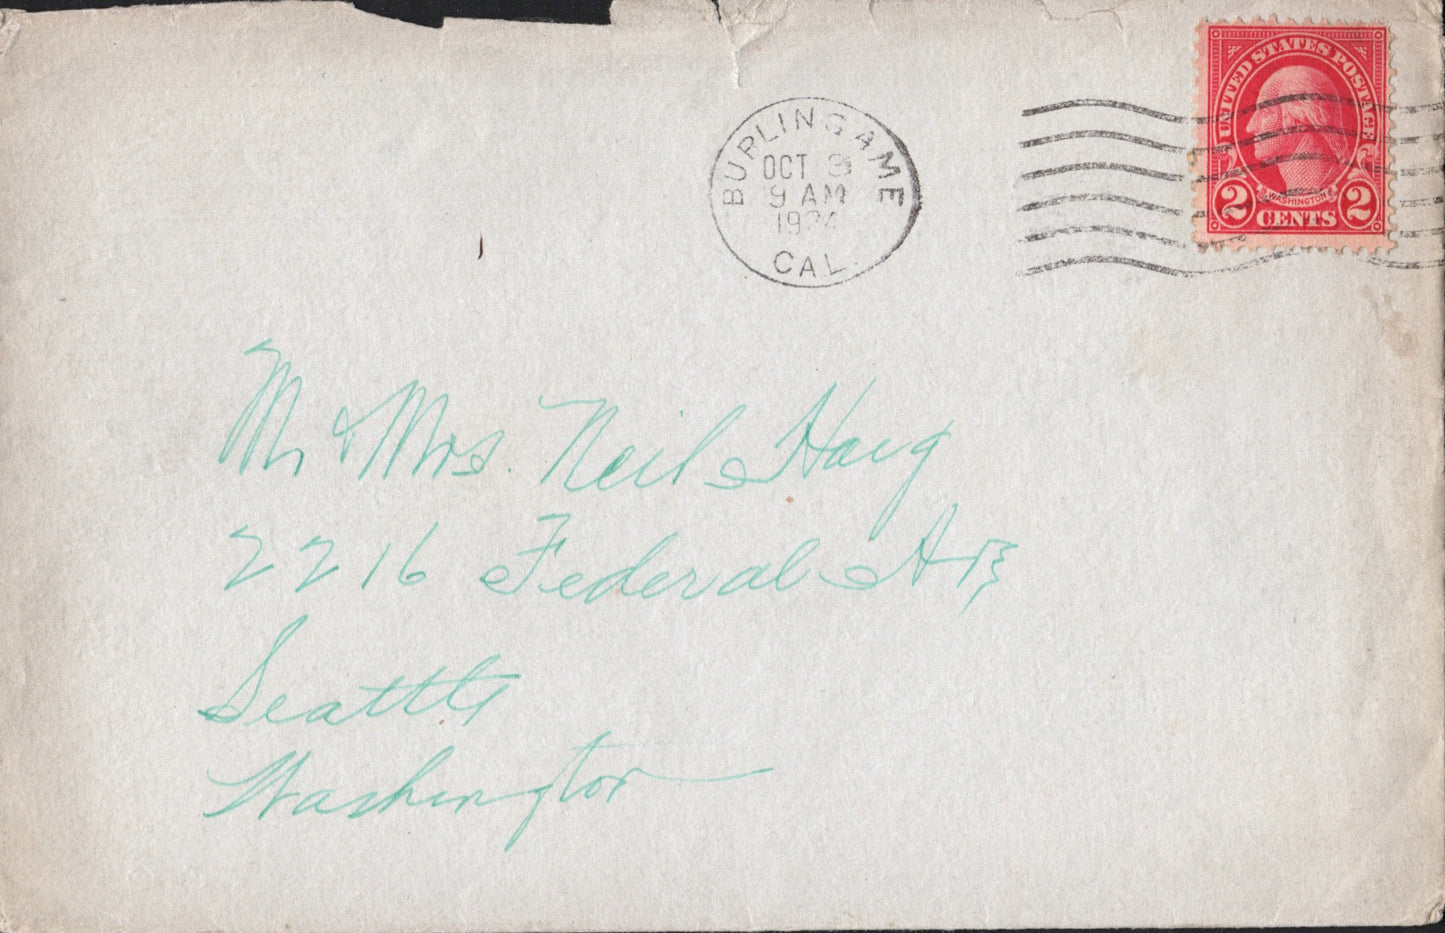 UNITED STATES POSTAGE
WASHINGTON
2 CENTS 2
BURLINGAME
OCT
9 AM
1924
CAL.
Mr & Mrs. Neil Haig
2216 Federal Av
Seattle
Washington